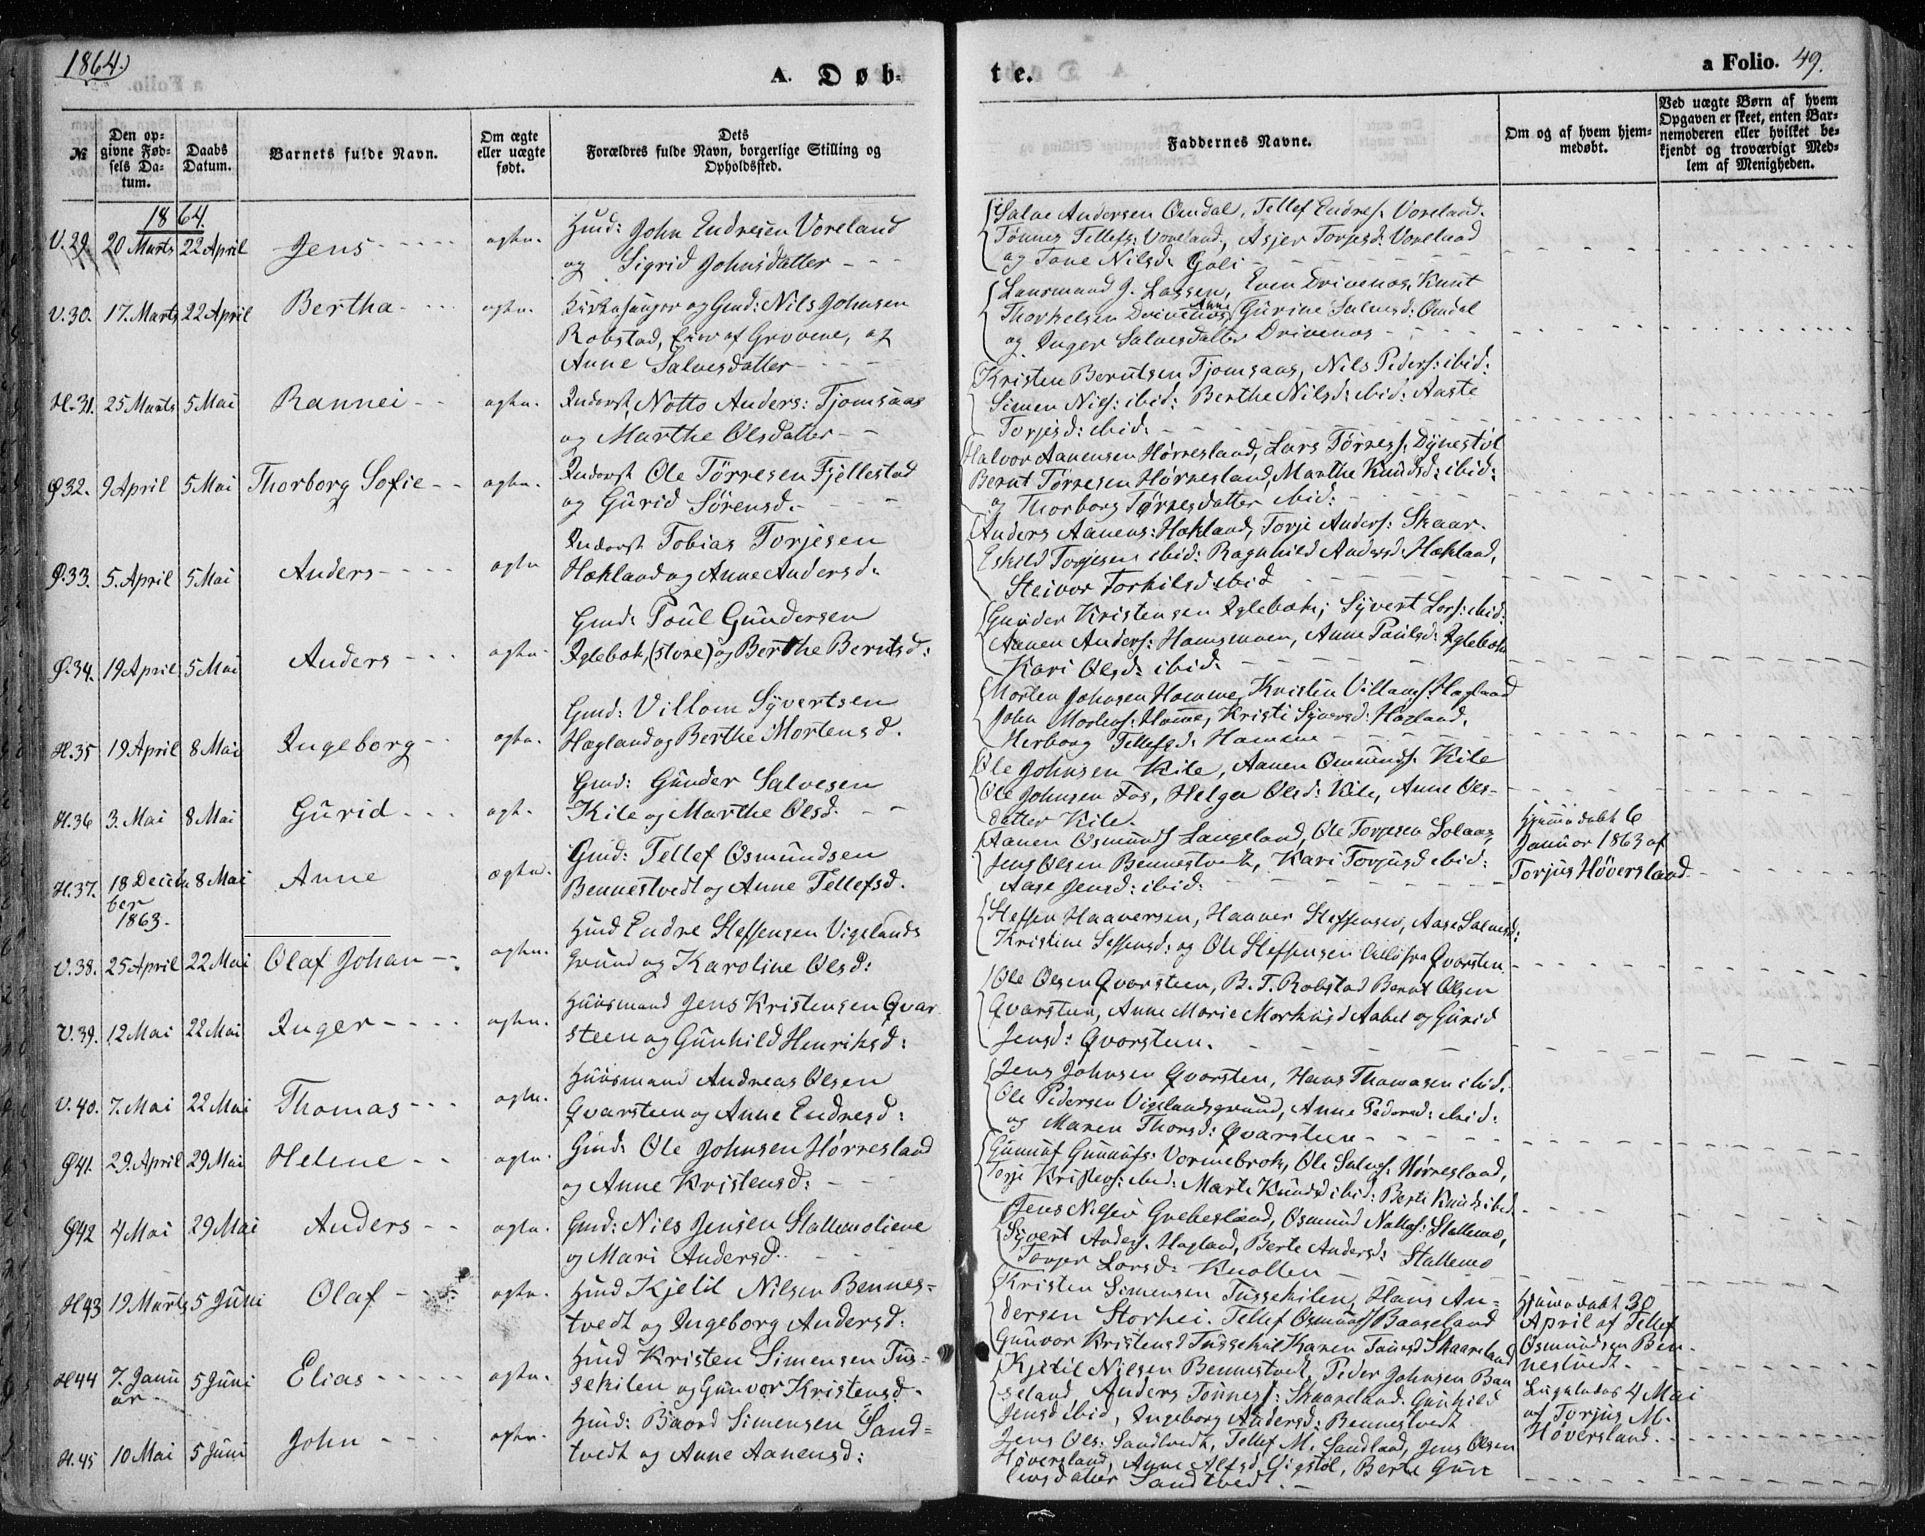 1864.
A. Døb-
te.
a Folio. 49.
№
Den op-
givne Fød-
sels Da-
tum.
Daabs
Datum.
Barnets fulde Navn.
Om ægte
eller uægte
født.
Dets
Forældres fulde Navn, borgerlige Stilling og
Opholdssted.
Faddernes Navne.
Om og af hvem hjem-
medøbt.
Ved uægte Børn af hvem
Opgaven er skeet, enten Bar-
nemoderen eller hvilket be-
kjendt og troværdigt Med-
lem af Menigheden.
1864.
V.29. 20 Marts 22 April Jens ægte. Huusd: John Endresen Voreland
og Sigrid Johnsdatter
Salve Andersen Omdal, Tellef Endres. Voreland.
Tønnes Tellefs: Voreland, Asjer Torjesd: Voreland
og Tone Nilsd. Goli
V.30. 17. Marts 22 April Bertha ægte. Kirkesanger og Gmd: Nils Johnsen
Robstad, Eier af Grovene, og
Anne Salvesdatter
Lensmand J. Lassen, Even Drivenes, Knut
Thorkelsen Drivenes, Anne Gurine Salvesd: Omdal
og Inger Salvesdatter Drivenes
H.31. 25 Marts 5 Mai Rannei ægte. Inderst, Notto Anders: Tjomsaas
og Marthe Olsdatter
Kristen Berntsen Tjomsaas, Nils Peders: ibid:
Simen Nils: ibid: Berthe Nilsd: ibid: Aaste
Torjesd: ibid.
Ø32. 9 April 5 Mai Thorborg Sofie ægte. Inderst Ole Tørresen Fjellestad
og Gurid Sørensd.
Halvor Aanensen Hørresland, Lars Tørress. Dynestøl
Bernt Tørresen Hørresland, Marthe Knudsd: ibid:
og Thorborg Tørresdatter ibid:
Ø.33. 5. April 5 Mai Anders ægte Inderst Tobias Torjesen
Hækland og Anne Andersd.
Anders Aanens: Hækland, Torje Anders: Skaar.
Eskild Torjesen ibid: Ragnhild Andersd: Hækland,
Steivor Torkilsd: ibid
Ø.34. 19 April 5 Mai Anders ægte Gmd: Poul Gundersen
Iglebæk, (store) og Berthe Berntsd:
Gunder Kristensen Iglebæk, Syvert Lars: ibid:
Aanen Anders: Homsmoen, Anne Paulsd: Iglebæk
Kari Olsd: ibid.
H.35 19 April 8 Mai Ingeborg ægte. Gmd: Villom Syvertsen
Hægland og Berthe Mortensd.
Morten Johnsen Homme, Kristen Villoms. Hægland
John Mortens: Homme, Kristi Syversd: Hægland,
Herborg Tellefsd. Homme
H.36 3. Mai 8 Mai Gurid ægt. Gmd: Gunder Salvesen
Kile og Marthe Olsd.
Ole Johnsen Kile, Aanen Osmunds. Kile
Ole Johnsen Fos, Helga Olsd: Kile, Anne Ols-
datter Kile.
H.37. 18 Decem
ber
1863. 8 Mai Anne ægte. Gmd: Tellef Osmundsen
Bennestvedt og Anne Tellefsd.
Aanen Osmunds Langeland, Ole Torjesen Solaas,
Jens Olsen Bennestvedt, Kari Torjusd ibid:
Aase Jensd: ibid:
Hjemmedøbt 6
Januar 1863 af
Torjus Høversland
V.38. 25 April 22 Mai Olaf Johan ægte. Huusd Endre Steffensen Vigelands
Grund og Karoline Olsd:
Steffen Haaversen, Haaver Steffensen, Aase Salvesd:
Kristine Steffensd: og Ole Steffensen alle fra Qvarsten
V.39. 12 Mai 22 Mai Inger ægte. Huusmand Jens Kristensen Qvar
steen og Gunhild Henriksd:
Ole Olsen Qvarsteen, B. T. Robstad Bernt Olsen
Qvarsteen, Anne Marie Markusd Aabel og Gurid
Jensd: Qvarsteen.
V.40. 7. Mai 22 Mai Thomas ægte. Huusmand Andreas Olsen
Qvarsteen og Anne Endresd:
Jens Johnsen Qvarsten, Hans Thomasen ibid.
Ole Pedersen Vigelandsgrund, Anne Pedersd: ibid:
og Maren Thorsd: Qvarsteen
Ø41. 29. April 29 Mai Helene ægte. Gmd: Ole Johnsen Hørresland
og Anne Kristensd:
Gunnuf Gunnufs: Vormebrok, Ole Salves: Hørresland,
Torje Kristens: ibid: Marte Knudsd ibid: Berte Knuds ibid
Ø42 4 Mai 29 Mai Anders ægte. Gmd: Nils Jensen Stallemoliene
og Mari Andersd.
Jens Nilsen Grebesland, Osmund Nottos: Stallemo,
Syvert Anders. Hægland, Berte Andersd: Stallemo
Torjer Larsd: Knollen
H43 19 Marts 5 Juni Olaf ægte. Huusd Kjetil Nilsen Bennes-
tvedt og Ingeborg Andersd:
Kristen Simensen Tussekilen, Hans An-
dersen Storhei. Tellef Osmunds Baaseland
Gunvor Kristensd Tussekil Karen Tønnesd Skaareland
Hjemmedøbt 30
April af Tellef
Osmundsen Ben-
nestvedt.
H44 7. Janu
ar 5 Juni Elias ægte. Huusd Kristen Simensen Tus-
sekilen og Gunvor Kristensd.
Kjetil Nilsen Bennestvedt, Peder Johnsen Baa
seland, Anders Tønness: Skaareland. Gunhild
Jensd ibid, Ingeborg Andersd: Bennestvedt
4 Mai
af Torjus M.
Høversland.
H.45 10 Mai 5 Juni John ægte. Huusd: Baard Simensen Sand-
tvedt og Anne Aanensd:
Jens Ols: Sandtvedt, Tellef M. Sandland, Jens Olsen
Høversland, Anne Alfsd Vigstøl, Berte Gun
Sandtvedt.